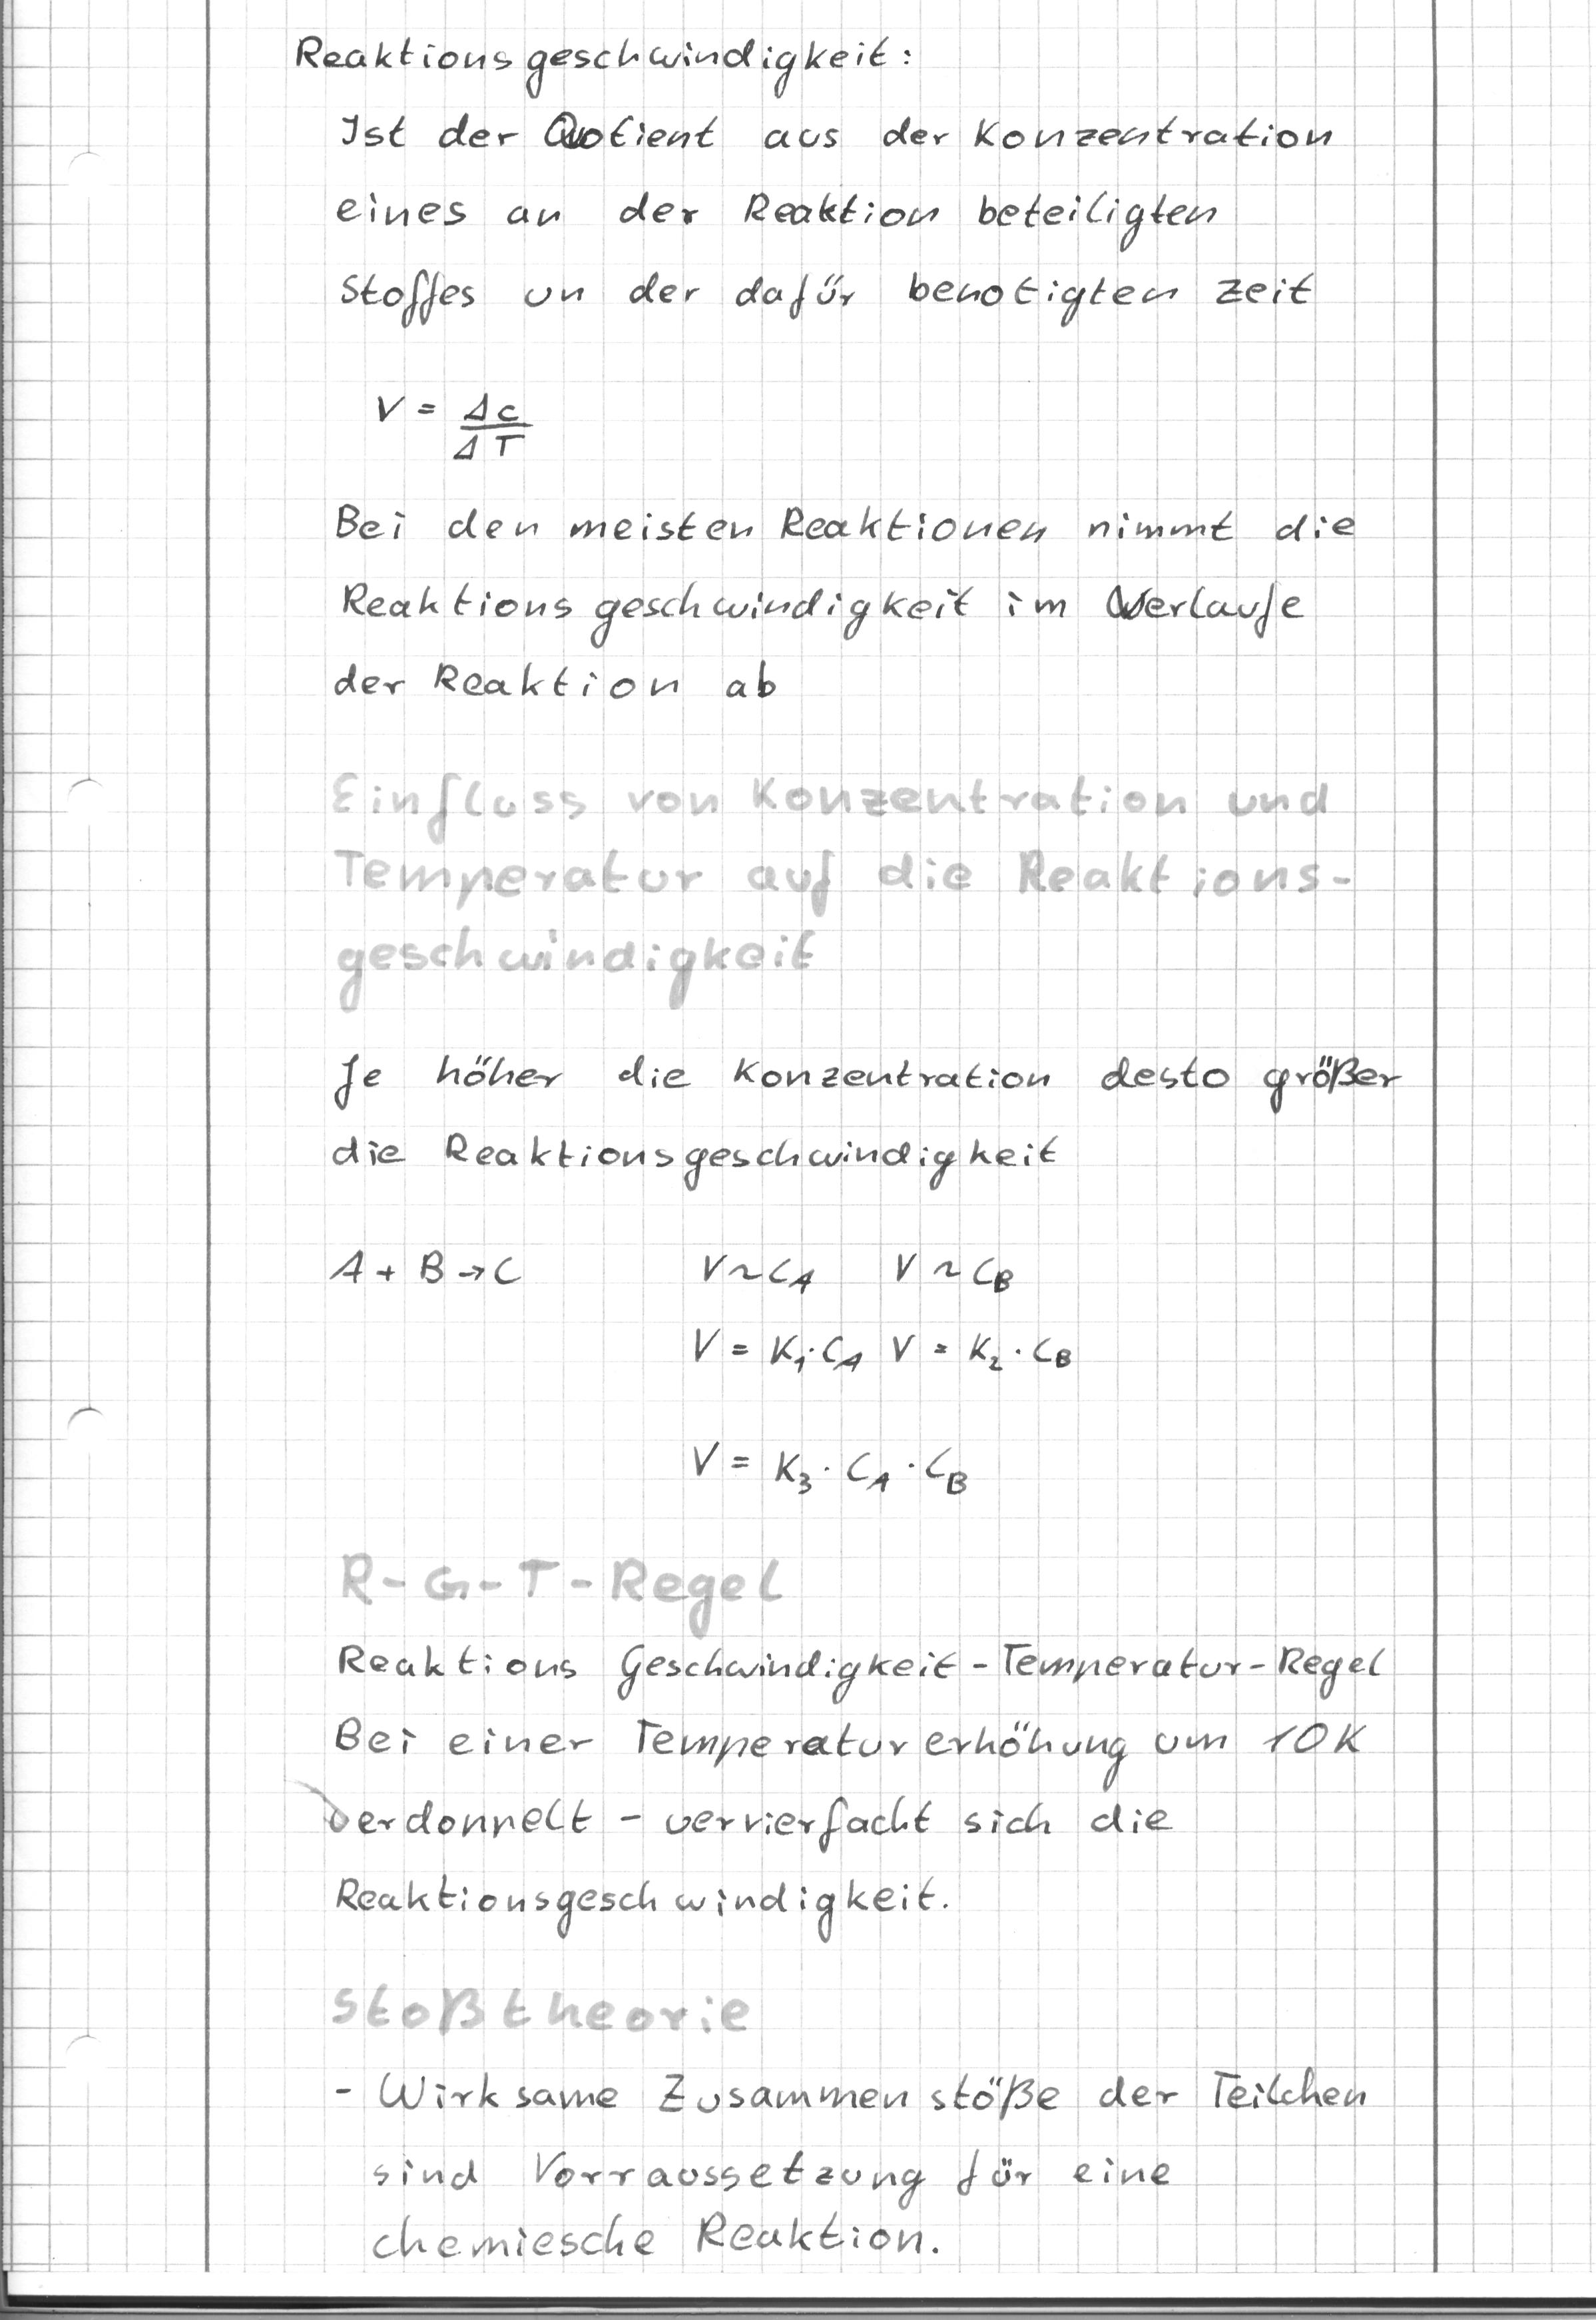 Reaktionsgeschwindigkeit:
Ist der Quotient aus der Konzentration
eines an der Reaktion beteiligten
Stoffes un der dafür benotigten Zeit
V = Δc / ΔT
Bei den meisten Reaktionen nimmt die
Reaktionsgeschwindigkeit im Verlaufe
der Reaktion ab
Einfluss von Konzentration und
Temperatur auf die Reaktions-
geschwindigkeit
Je höher die Konzentration desto größer
die Reaktionsgeschwindigkeit
A + B → C V ~ C_A V ~ C_B
V = K_1 · C_A V = K_2 · C_B
V = K_3 · C_A · C_B
R-G-T-Regel
Reaktions Geschwindigkeit-Temperatur-Regel
Bei einer Temperaturerhöhung um 10K
verdoppelt - vervierfacht sich die
Reaktionsgeschwindigkeit.
Stoßtheorie
- Wirksame Zusammenstöße der Teilchen
sind Vorraussetzung für eine
chemiesche Reaktion.